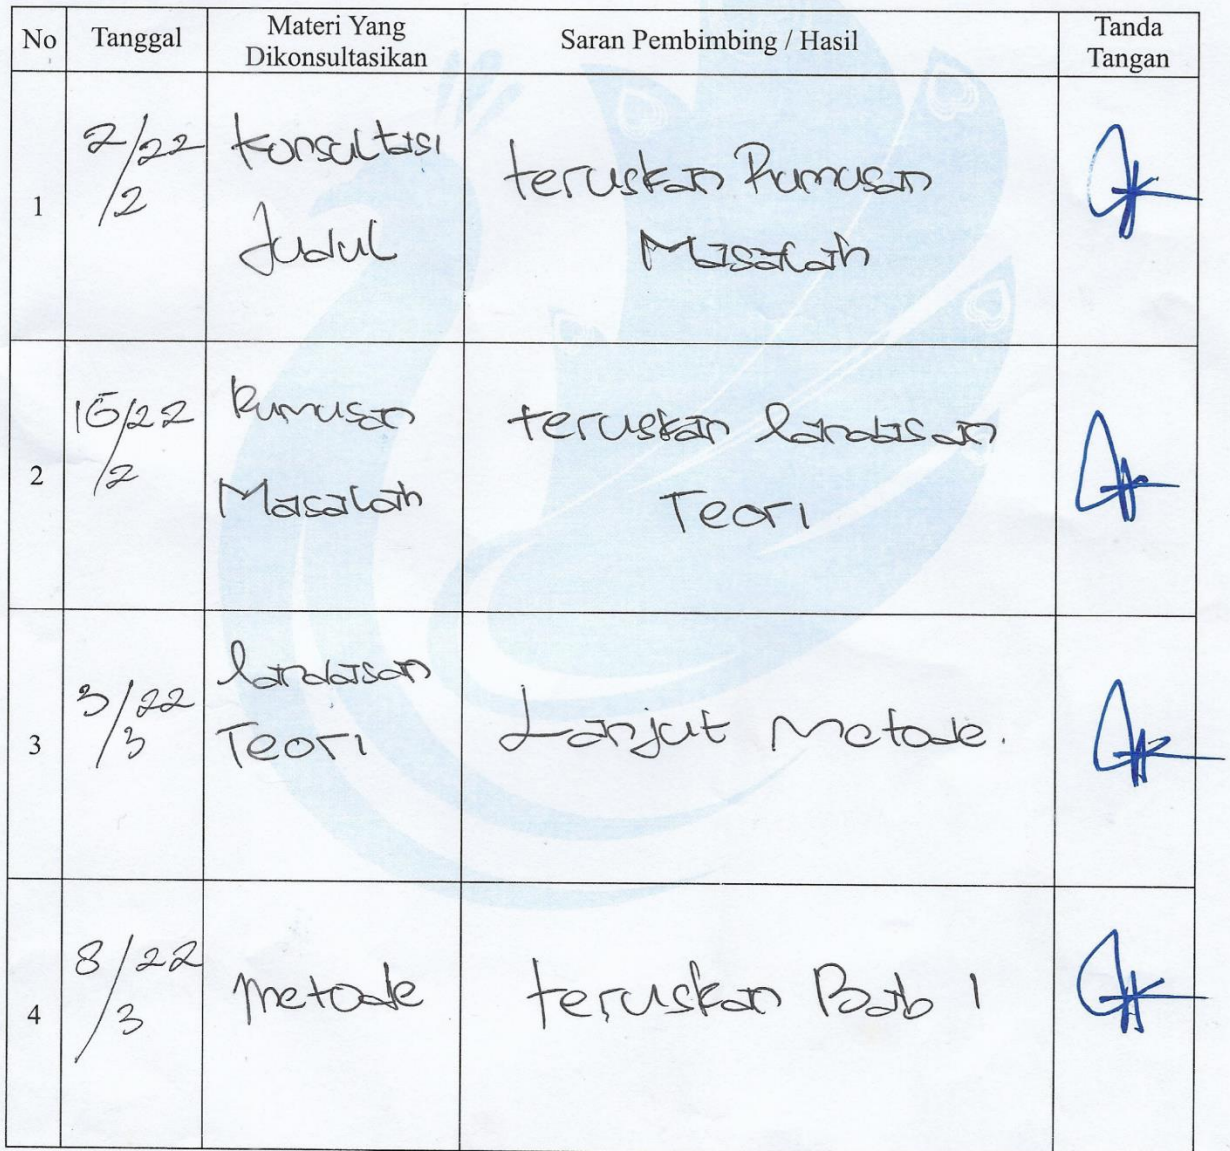 No Tanggal Materi Yang Dikonsultasikan Saran Pembimbing / Hasil Tanda Tangan
1 2/2 22 Konsultasi Judul teruskan Rumusan Masalah
2 /2 22 Rumusan Masalah teruskan landasan Teori
3 3/3 22 landasan Teori Lanjut Metode.
4 8/3 22 metode teruskan Bab 1